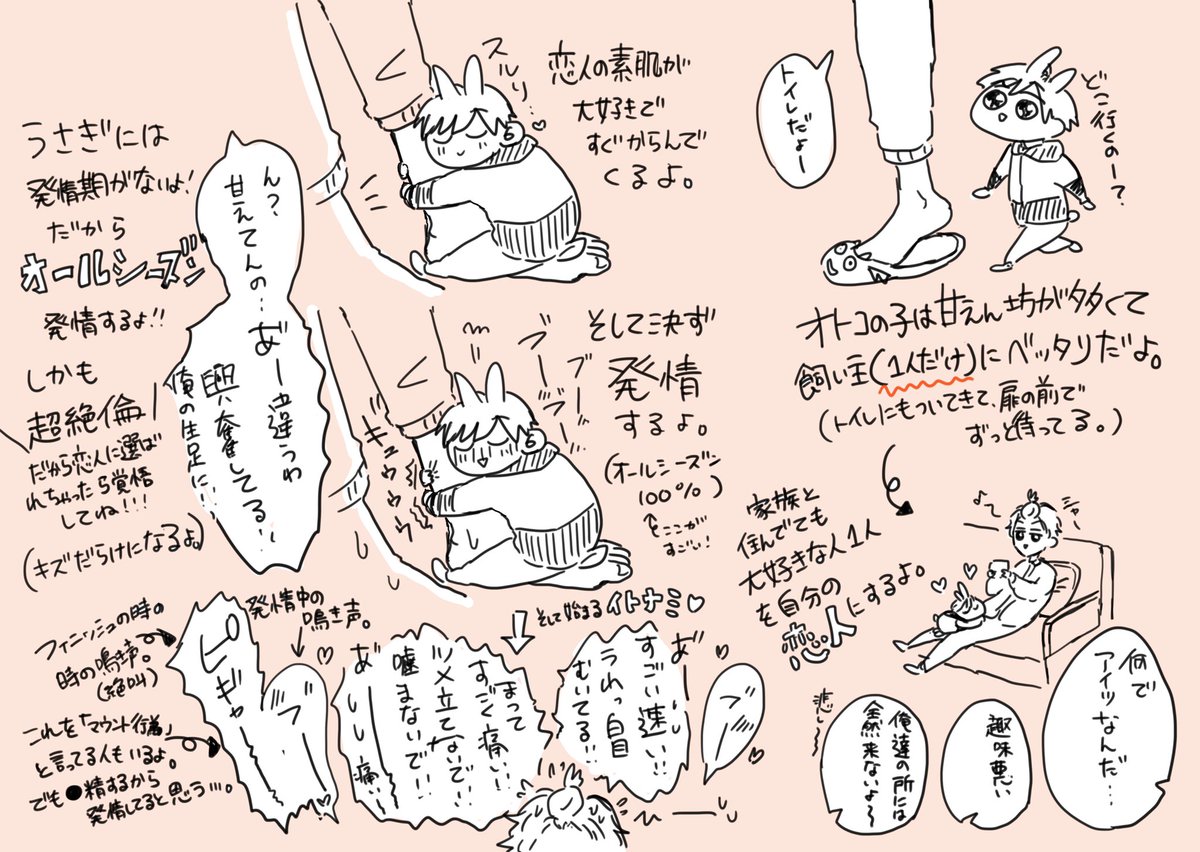 どこ行くのー?
トイレだよー
オトコの子は甘えん坊が多くて
飼い主(1人だけ)にベッタリだよ。
(トイレにもついてきて、扉の前で
ずっと待ってる。)
家族と
住んでても
大好きな人1人
を自分の
恋人にするよ。
何で
アイツなんだ…
趣味悪い
俺達の所には
全然来ないよ〜
悲し〜〜
恋人の素肌が
大好きで
すぐからんで
くるよ。
スルリ…♡
そして決ず
発情
するよ。
(オールシーズン
100%)
↑ここが
すごい!
ブーブーブー
ギュウウウウ
ん?
甘えてんの…
あ゛ー違うわ
興奮してる!
俺の生足に…
うさぎには
発情期がないよ!
だから
オールシーズン
発情するよ!!
しかも
超絶倫!
だから恋人に選ば
れちゃったら覚悟
してね!!!
(キズだらけになるよ。)
そして始まるイトナミ♡
ブ
あ゛ーーー
すごい速い!!
うわっ白目
むいてる!!
まって
すごく痛い!!
ツメ立てないで!!
噛まないで!!
あ゛ーーー痛い!!
発情中の
鳴き声。
ブーーー
ピギャーーー
フィニッシュの時の
時の鳴き声。
(絶叫)
これを「マウント行為」
と言ってる人もいるよ。
でも●精するから
発情してると思う…。